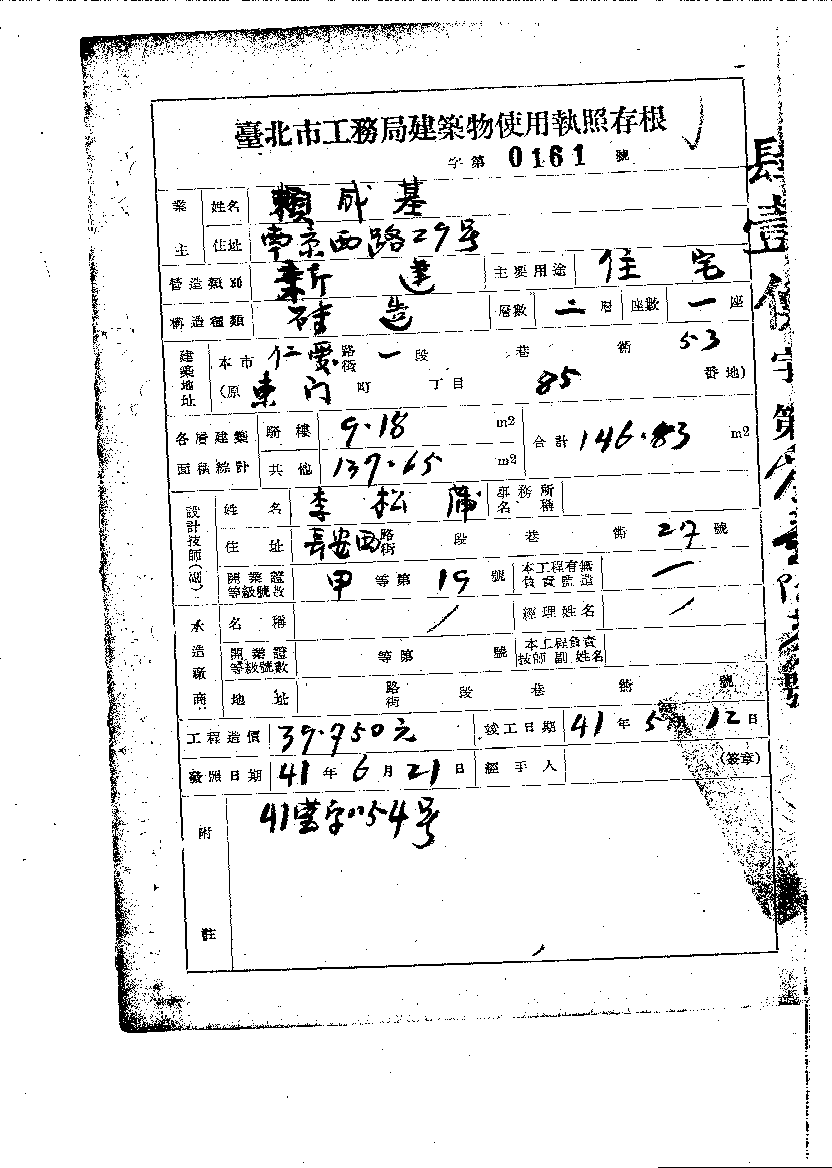 臺北市工務局建築物使用執照存根
字第 0161 號
業主 姓名 賴成基
住址 南京西路29号
營造類別 新建 主要用途 住宅
構造種類 磚造 層數 二層 座數 一座
建築地址 本市 仁愛路街 一段 巷 衖 53
(原 東门町 丁目 85 番地)
各層建築面積綜計 騎樓 9.18 m2 合計 146.83 m2
其他 137.65 m2
設計技師(副) 姓名 李松蒲 事務所名稱
住址 長安西路街 段 巷 衖 27 號
開業證等級號數 甲等第 19 號 本工程有無負責監造 一
承造廠商 名稱 / 經理姓名 /
開業證等級號數 等第 號 本工程負責技師 副 姓名
地址 路街 段 巷 衖 號
工程造價 39.750元 竣工日期 41年5月12日
發照日期 41年6月21日 經手人 (簽章)
附註 41營字0154号